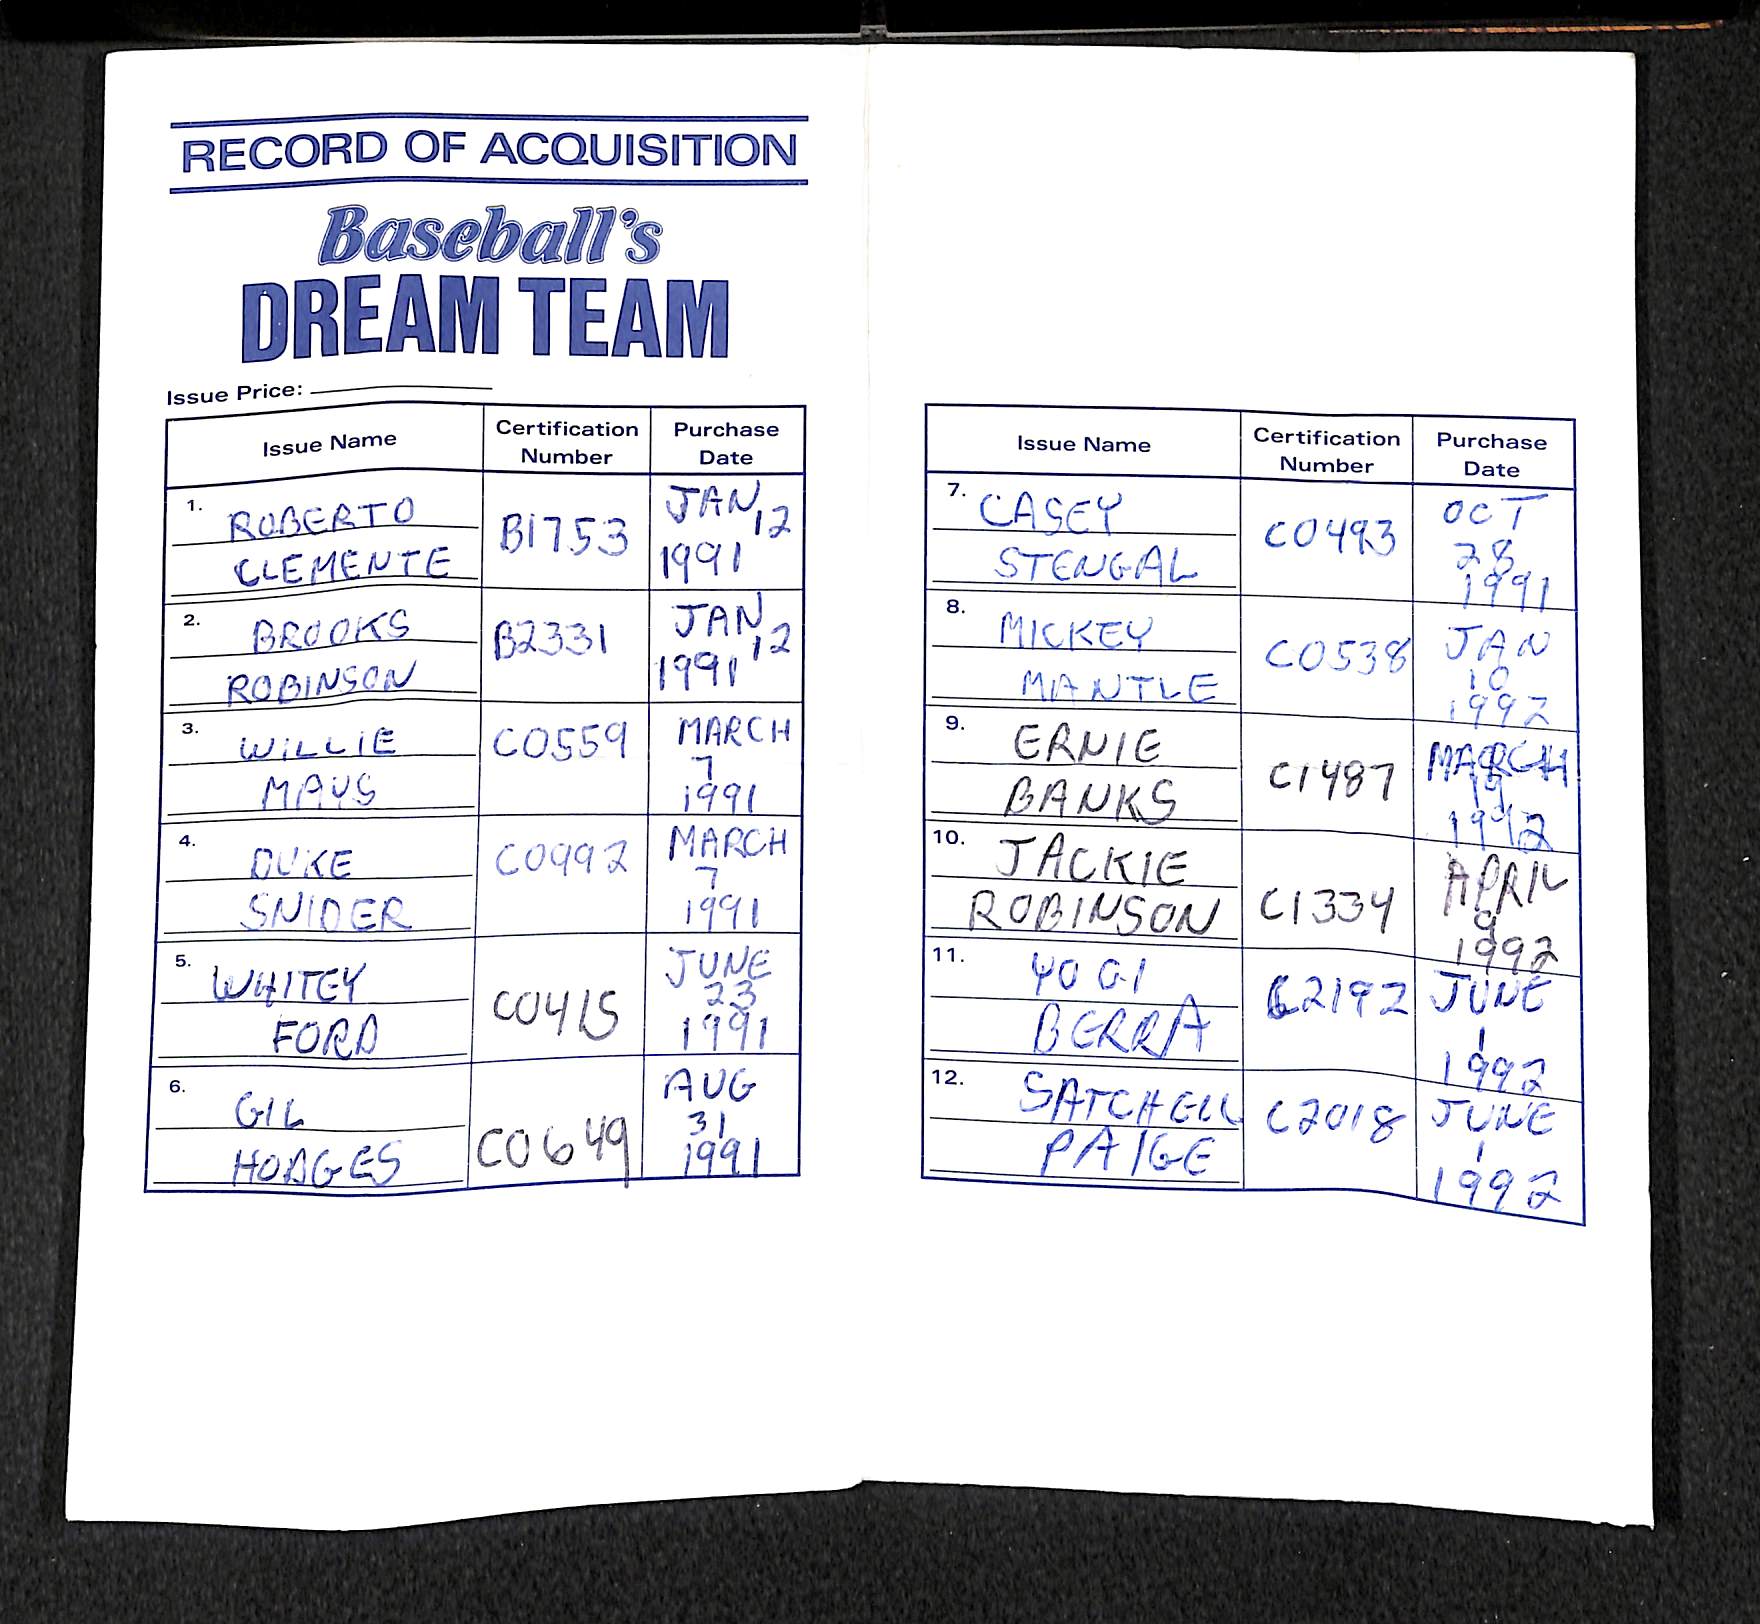 RECORD OF ACQUISITION
Baseball's
DREAM TEAM
Issue Price:
Issue Name Certification Number Purchase Date
1. ROBERTO CLEMENTE B1753 JAN, 12 1991
2. BROOKS ROBINSON B2331 JAN, 12 1991
3. WILLIE MAYS C0559 MARCH 7 1991
4. DUKE SNIDER C0992 MARCH 7 1991
5. WHITEY FORD C0415 JUNE 23 1991
6. GIL HODGES C0649 AUG 31 1991
Issue Name Certification Number Purchase Date
7. CASEY STENGAL C0493 OCT 28 1991
8. MICKEY MANTLE C0538 JAN 10 1992
9. ERNIE BANKS C1487 MARCH 1992
10. JACKIE ROBINSON C1334 APRIL 9 1992
11. YOGI BERRA C2192 JUNE 1 1992
12. SATCHELL PAIGE C2018 JUNE 1 1992